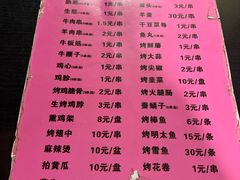 生筋 1元/串
牛肉串 1元/串
羊肉串 2元/串
牛板筋 1元/串
牛鞭子 2元/串
鸡心 1元/串
鸡胗 1元/串
烤鸡脆骨 1元/串
生烤鸡脖 3元/串
熏鸡架 8元/盘
烤翅中 10元/盘
麻辣烫 10元/盆
拍黄瓜 10元/盘
羊宝 30元/串
干豆腐卷 1元/串
鱼丸 2元/串
烤鲜蘑 1元/串
烤大蒜 1元/串
烤尖椒 2元/串
烤韭菜 10元/盘
烤火腿肠 2元/串
蚕蛹子 3元/串
烤棒鱼 6元/条
烤明太鱼 15元/条
烤雪鱼 30元/条
烤花卷 1元/串